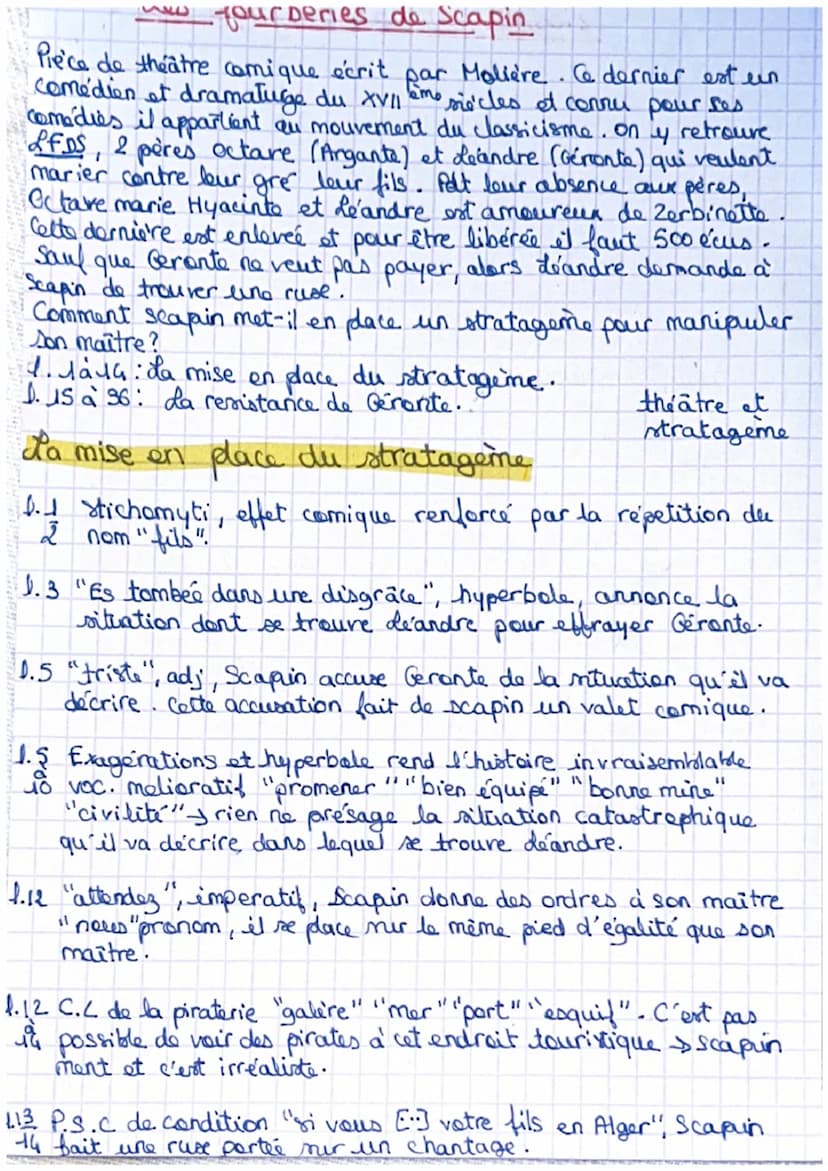 Les fourberies de Scapin
Pièce de théâtre comique écrit par Molière. Ce dernier est un
comédien et dramaturge du XVIIème siècles et connu pour ses
comédies il appartient au mouvement du classicisme. On y retrouve
LFDS, 2 pères Octave (Argante) et Léandre (Géronte) qui veulent
marier contre leur gré leur fils. Pdt leur absence aux pères,
Octave marie Hyacinte et Léandre est amoureux de Zerbinette.
Cette dernière est enlevée et pour être libérée il faut 500 écus.
Sauf que Geronte ne veut pas payer, alors Léandre demande à
Scapin de trouver une ruse.
Comment Scapin met-il en place un stratagème pour manipuler
son maître?
l. 1 à 14 : La mise en place du stratagème.
l. 15 à 36 : La resistance de Géronte.
théâtre et
stratagème
La mise en place du stratageme
l.1 stichomyti, effet comique renforcé par la répetition du
2 nom "fils".
l.3 "Es tombée dans une disgrâce", hyperbole, annonce la
situation dont se trouve Léandre pour effrayer Géronte.
l.5 "triste", adj, Scapin accuse Geronte de la situation qu'il va
décrire. Cette accusation fait de scapin un valet comique.
l.5 Exagérations et hyperbole rend l'histoire invraisemblable
à
10 voc. melioratif "promener" "bien équipé" "bonne mine"
"civilité" → rien ne présage la situation catastrophique
qu'il va décrire, dans lequel se trouve Léandre.
l.12 "attendez", imperatif, Scapin donne des ordres à son maître
"nous" pronom, il se place sur le même pied d'égalité que son
maître.
l.12 C.L de la piraterie "galère" "mer" "port" "esquif". C'est pas
à
14 possible de voir des pirates à cet endroit touristique → Scapin
ment et c'est irréaliste.
l.13 P.S.C de condition "si vous [...] votre fils en Alger", Scapin
14 fait une ruse portée sur un chantage.